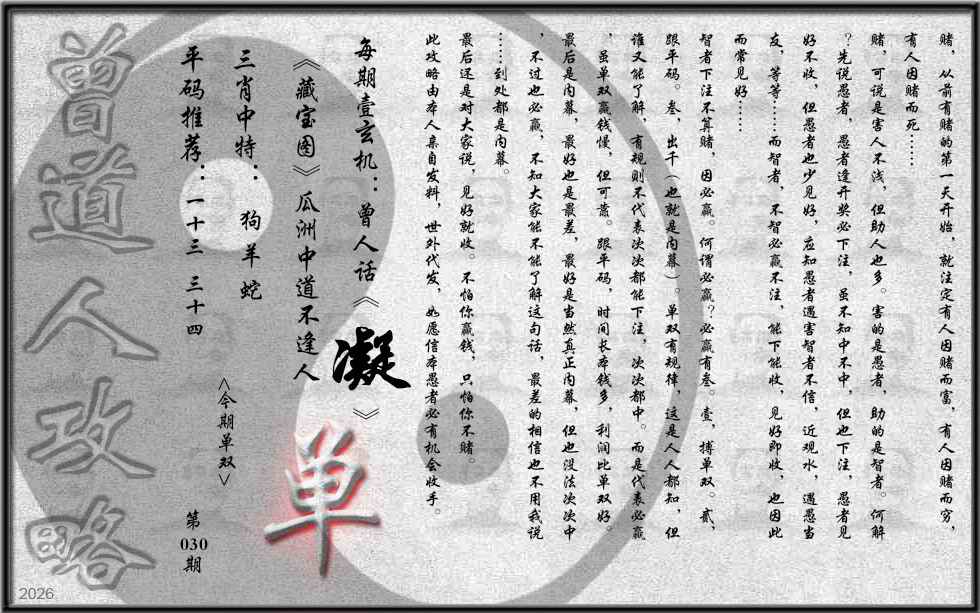 赌，从前有赌的第一天开始，就注定有人因赌而富，有人因赌而穷，
有人因赌而死……
赌，可说是害人不浅，但助人也多。害的是愚者，助的是智者。何解
？先说愚者，愚者逢开奖必下注，虽不知中不中，但也下注，愚者见
好不收，但愚者也少见好，应知愚者遇害智者不信，近观水，遇愚当
友，等等……而智者，不智必赢不注，能下能收，见好即收，也因此
而常见好……
智者下注不算赌，因必赢。何谓必赢？必赢有叁。壹，搏单双。贰，
跟平码。叁，出千（也就是内幕）。单双有规律，这是人人都知，但
谁又能了解，有规则不代表次次都能下注，次次都中。而是代表必赢
，虽单双赢钱慢，但可靠。跟平码，时间长本钱多，利润比单双好。
最后是内幕，最好也是最差，最好是当然真正内幕，但也没法次次中
，不过也必赢，不知大家能不能了解这句话，最差的相信也不用我说
……到处都是内幕。
最后还是对大家说，见好就收。不怕你赢钱，只怕你不赌。
此攻略由本人亲自发料，世外代发，如愿信本愚者必有机会收手。
每期壹玄机：曾人话《凝》
《藏宝图》瓜洲中道不逢人
单
三肖中特：狗羊蛇
<今期单双>
平码推荐：一十三 三十四
第030期
曾道人攻略
2026